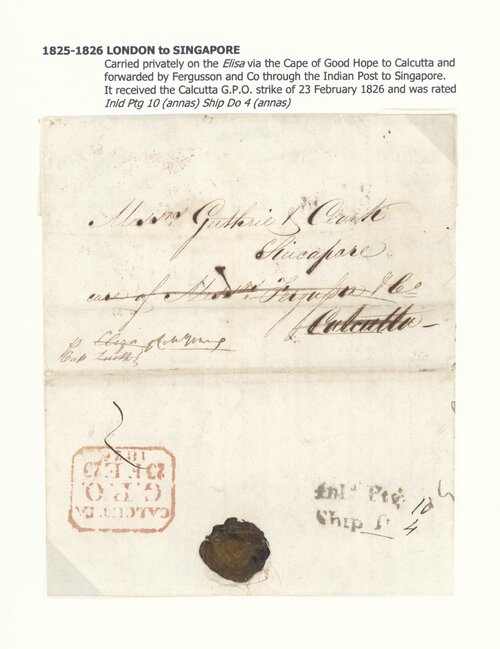 1825-1826 LONDON to SINGAPORE
Carried privately on the Elisa via the Cape of Good Hope to Calcutta and
forwarded by Fergusson and Co through the Indian Post to Singapore.
It received the Calcutta G.P.O. strike of 23 February 1826 and was rated
Inld Ptg 10 (annas) Ship Do 4 (annas)
Messrs Guthrie & Clark
Sincapore
care of Messrs Ferguson & Co
Calcutta
Eliza
Cap
CALCUTTA
G.P.O.
23 FE 23
1826
Inld Ptg 10
Ship D 4